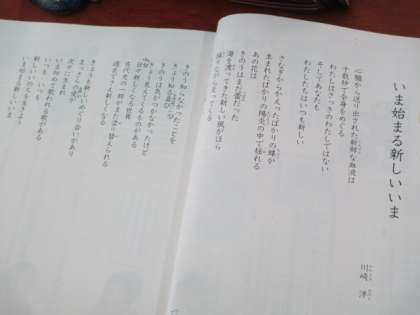 いま始まる新しいいま
川崎 洋
心臓から送り出された新鮮な血液は
十数秒で全身をめぐる
わたしはさっきのわたしではない
そしてあなたも
わたしたちはいつも新しい
さなぎからかえったばかりの蝶が
生まれたばかりの陽炎の中で揺れる
あの花は
きのうはまだ蕾だった
海を渡ってきた新しい風がほら
踊りながら走ってくる
きのう知らなかったことを
きょう知る喜び
きのうは気がつかなかったけど
きょう見えてくるものがある
日々新しくなる世界
古代史の一部がまた塗り替えられる
過去でさえ新しくなる
きょうも新しいめぐり合いがあり
まっさらの愛が
次々に生まれ
いま初めて歌われる歌がある
いつも いつも
新しいいのちを生きよう
いま始まる新しいいま